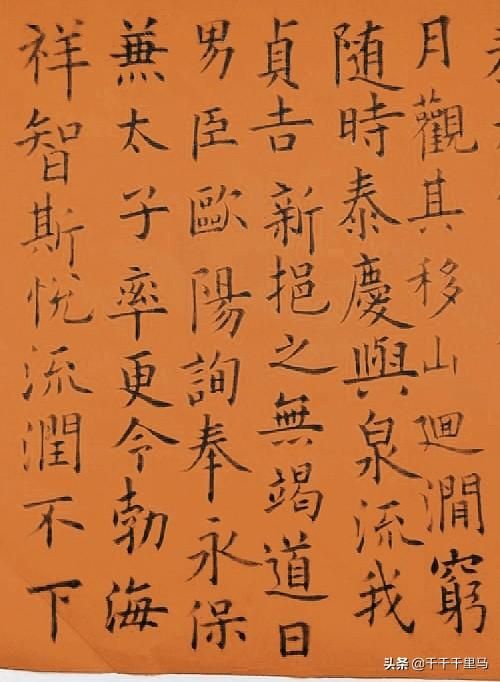 月觀其移山廻澗窮
随時泰慶與泉流我
貞吉新挹之無竭道日
男臣歐陽詢奉永保
兼太子率更令勃海
祥智斯悅流潤不下
头条 @千千千里马